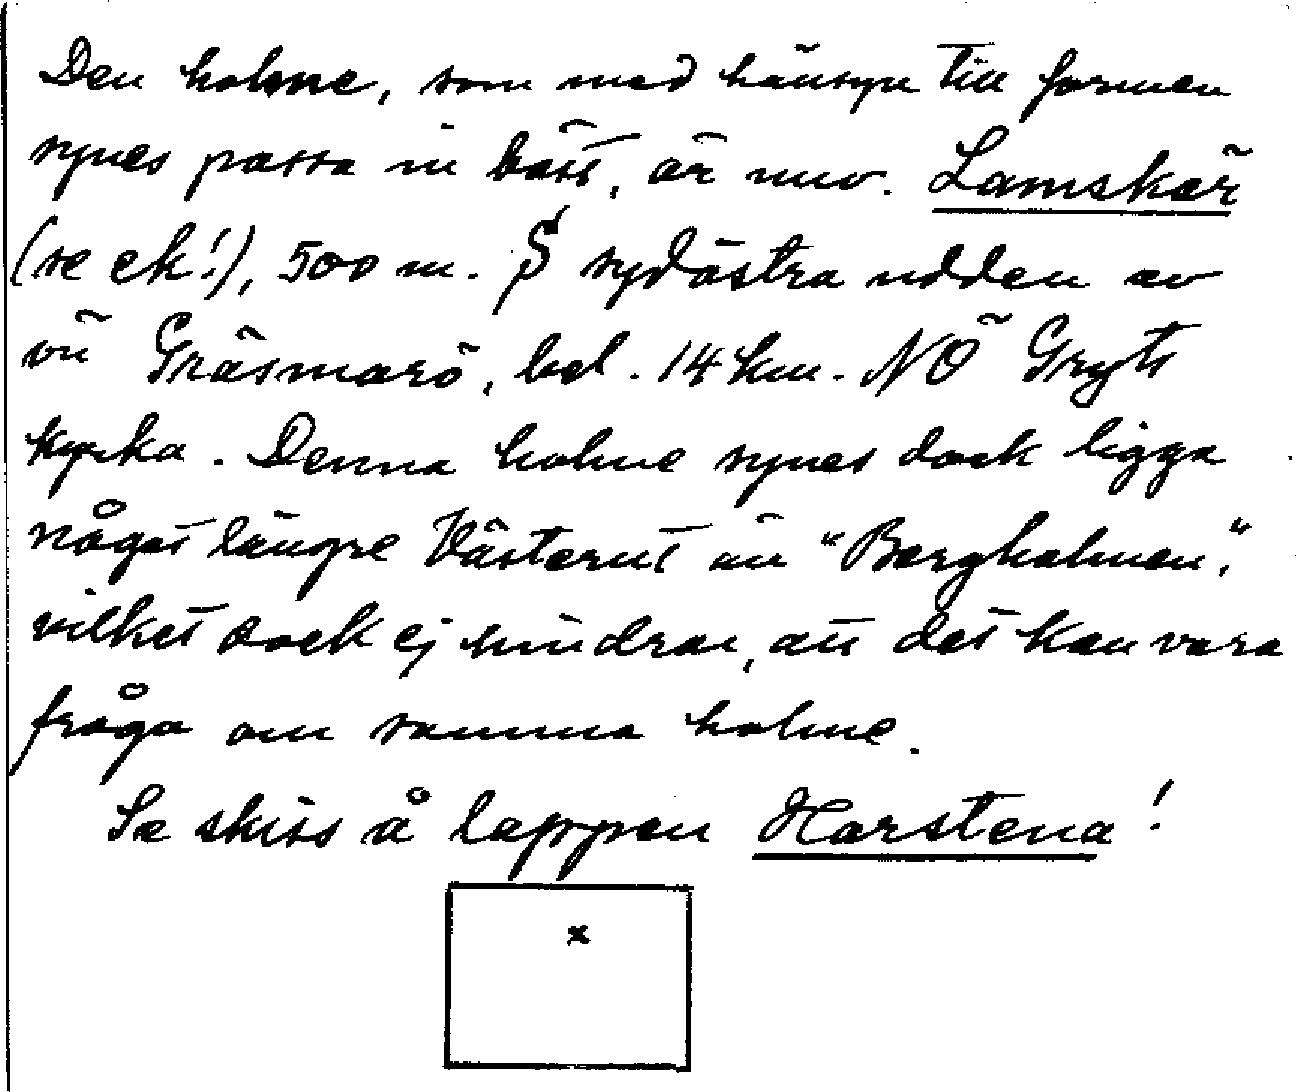 Den holme, som med hänsyn till formen
synes passa in bäst, är nuv. Lamskär
(se ek!), 500 m. S sydöstra udden av
ön Gräsmarö, bel. 14 km. NÖ Gryts
kyrka. Denna holme synes dock ligga
något längre västerut än "Bergholmen",
vilket dock ej hindrar, att det kan vara
fråga om samma holme.
Se skiss å lappen Harstena!
x